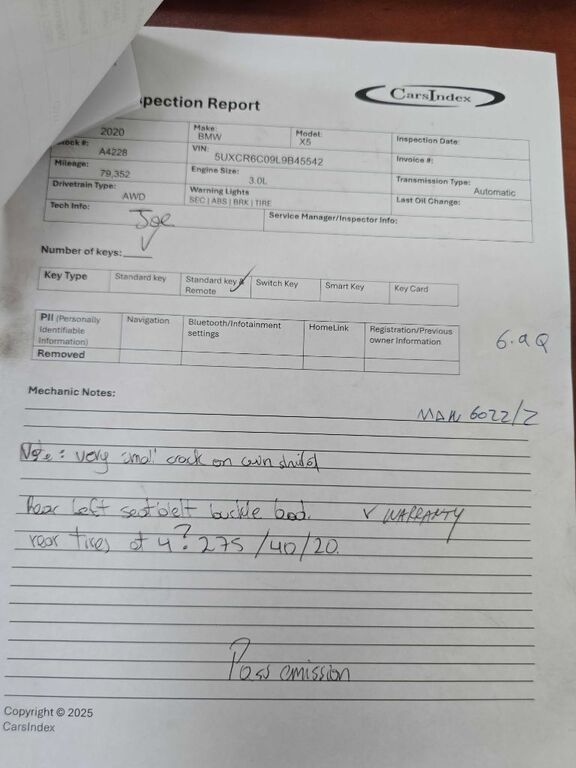 CarsIndex
pection Report
2020
Make:
BMW
Model:
X5
Inspection Date:
ock #:
A4228
VIN:
5UXCR6C09L9B45542
Invoice #:
Mileage:
79,352
Engine Size:
3.0L
Transmission Type:
Automatic
Drivetrain Type:
AWD
Warning Lights
SEC | ABS | BRK | TIRE
Last Oil Change:
Tech Info:
Joe
Service Manager/Inspector Info:
Number of keys:
Key Type
Standard key
Standard key &
Remote
Switch Key
Smart Key
Key Card
PII (Personally
Identifiable
Information)
Removed
Navigation
Bluetooth/Infotainment
settings
HomeLink
Registration/Previous
owner Information
6.9Q
Mechanic Notes:
6022/2
Note: very small crack on win shield
Rear Left seatbelt buckle bad. ✓ WARRANTY
rear tires at 4? 275/40/20.
Pass emission
Copyright © 2025
CarsIndex